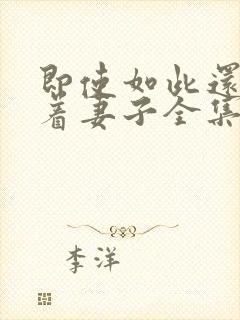 即使如此還
着妻子全集
李洋